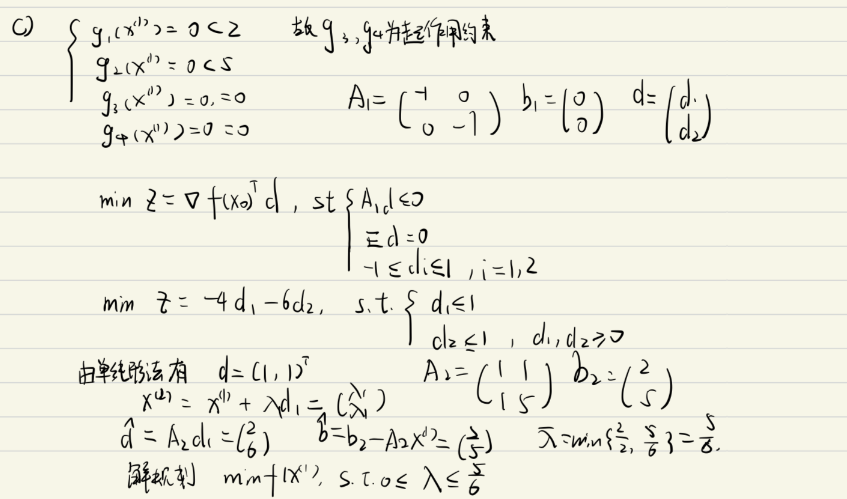 C) { g₁(x⁽¹⁾) = 0 < 2 故 g₃, g₄为起作用约束
g₂(x⁽¹⁾ = 0 < 5
g₃(x⁽¹⁾) = 0, = 0 A₁ = (-1 0; 0 -1) b₁ = (0; 0) d = (d₁; d₂)
g₄(x⁽¹⁾) = 0 = 0
min z = ∇f(x₀)ᵀd, st { A₁d ≤ 0
Ed = 0
-1 ≤ di ≤ 1, i = 1, 2
min z = -4d₁ - 6d₂, s.t. { d₁ ≤ 1
d₂ ≤ 1, d₁, d₂ ≥ 0
由单纯形法有 d = (1, 1)ᵀ A₂ = (1 1; 1 5) b₂ = (2; 5)
x⁽²⁾ = x⁽¹⁾ + λd₁ = (λ; λ)
d̂ = A₂d₁ = (2; 6) b̂ = b₂ - A₂x⁽¹⁾ = (2; 5) λ̄ = min{2/2, 5/6} = 5/6.
解规划 min f(x⁽¹⁾, s.t. 0 ≤ λ ≤ 5/6